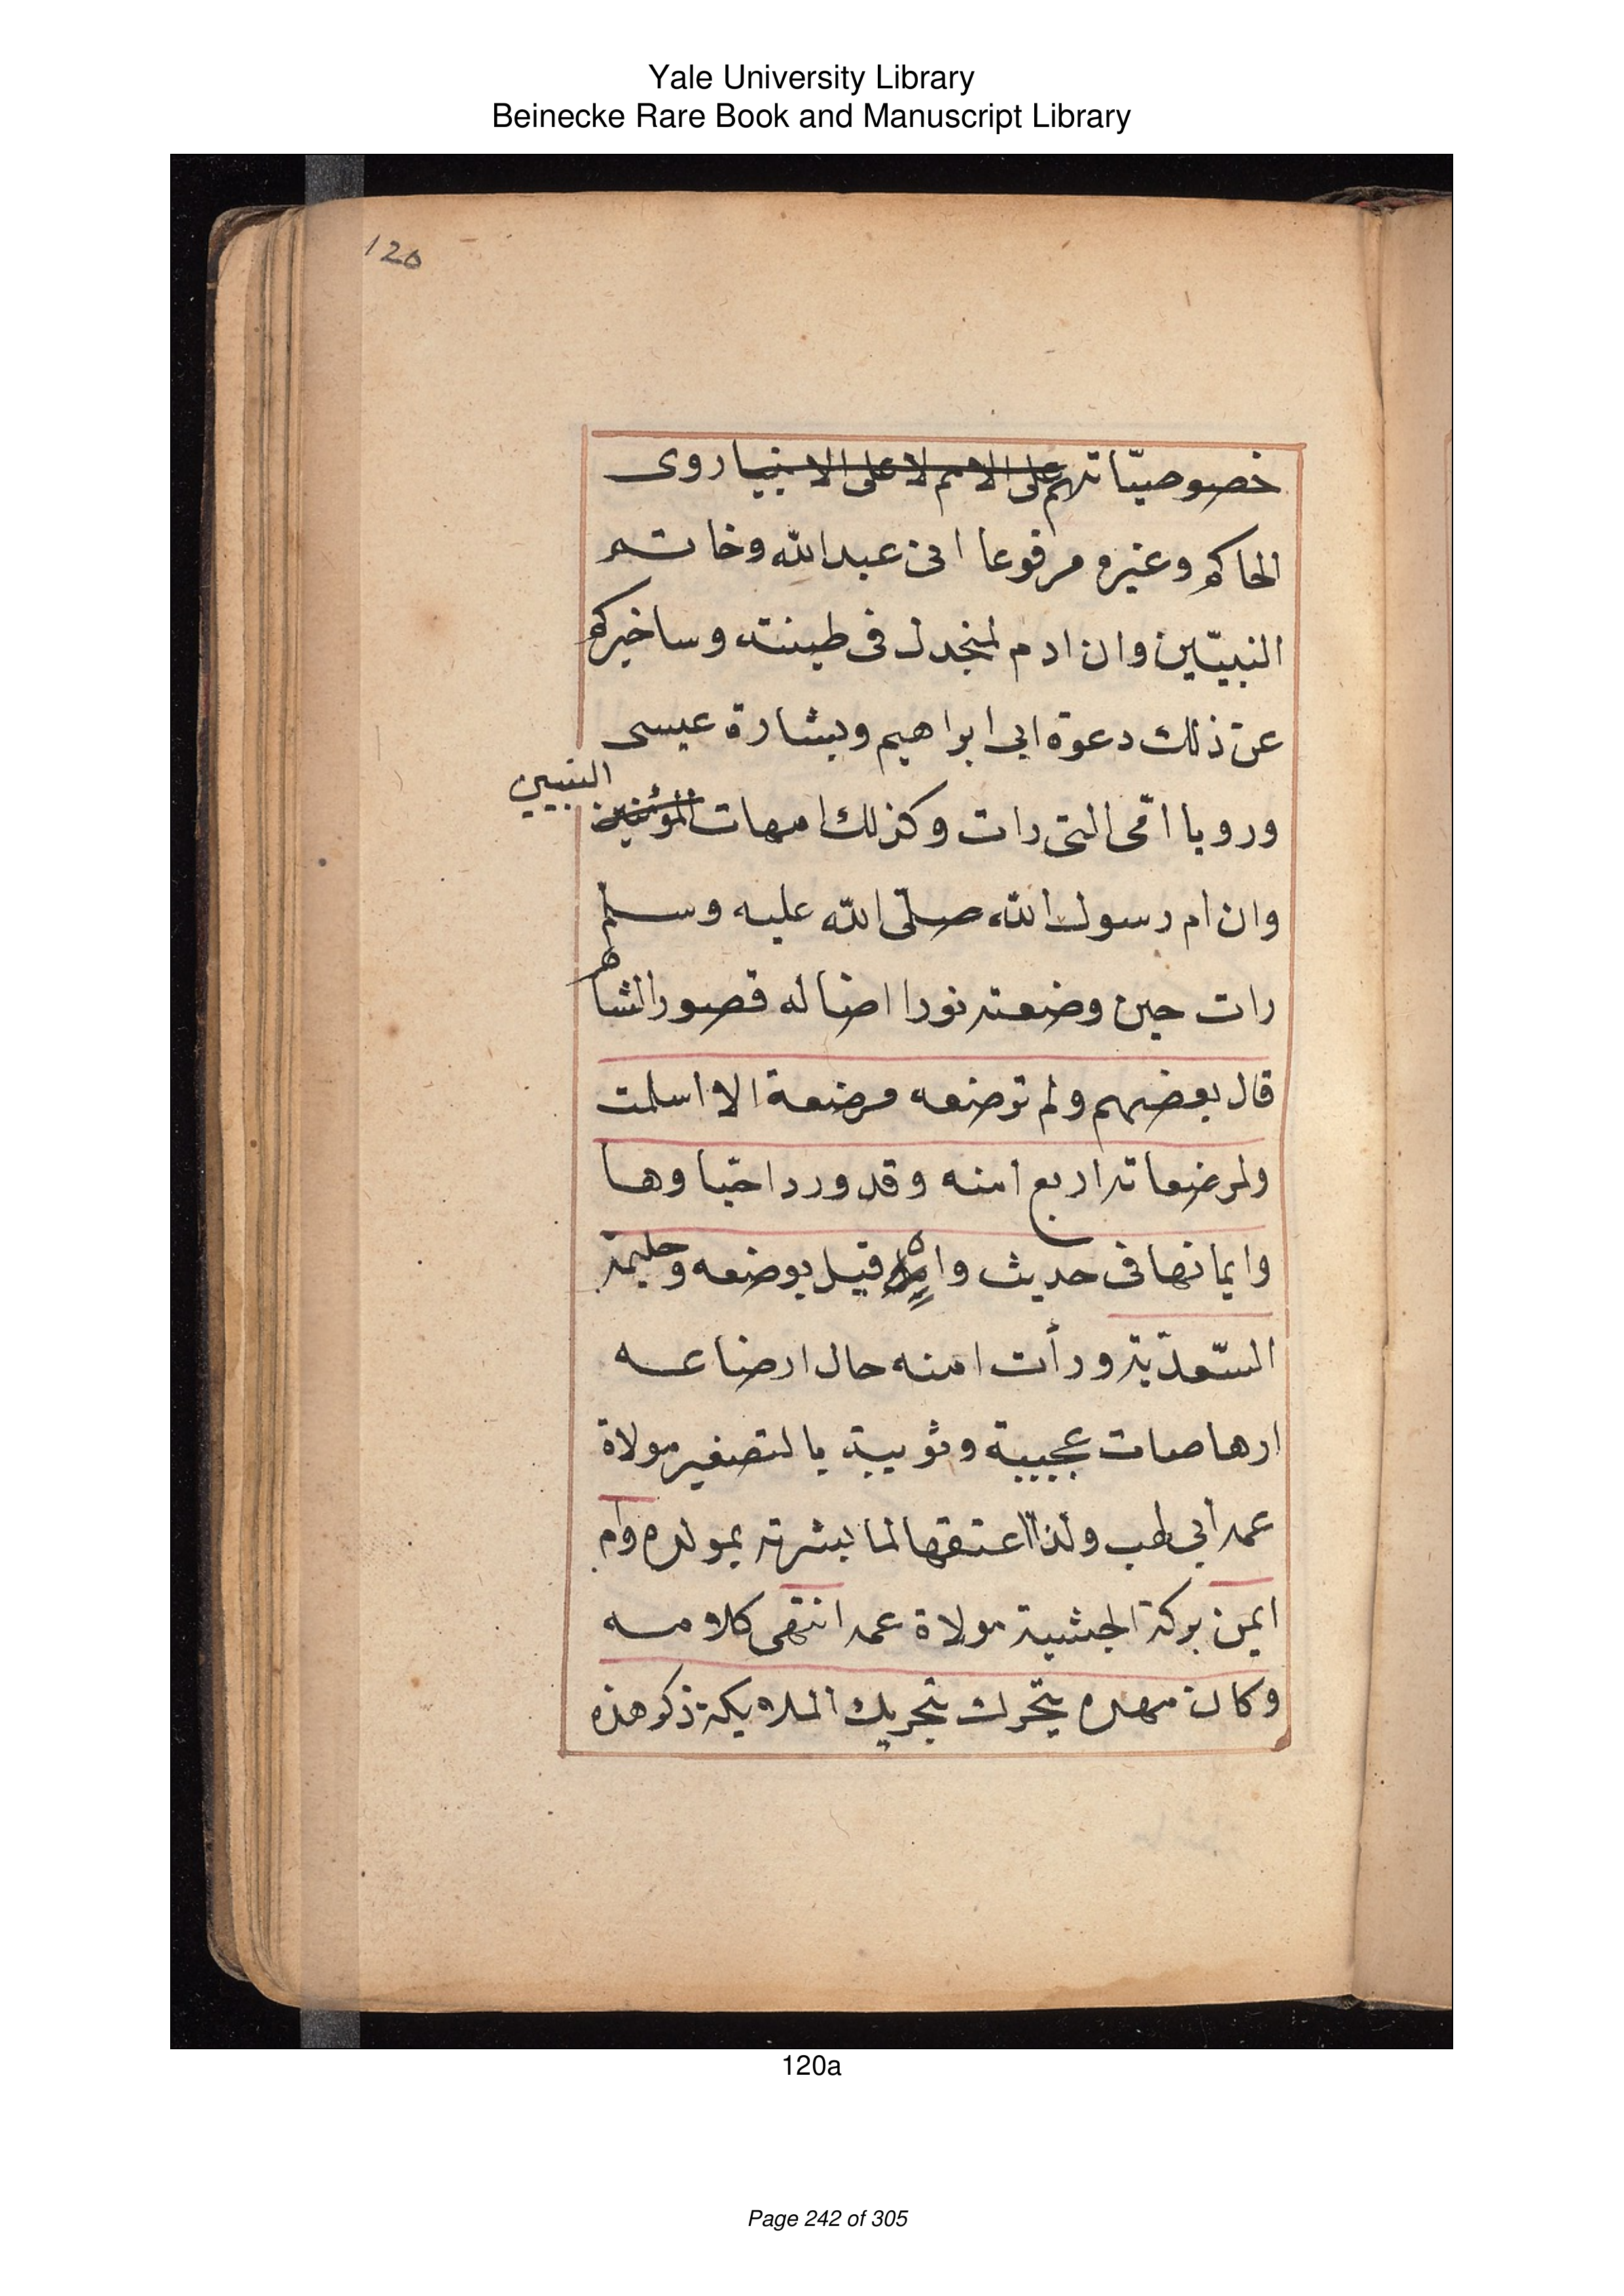 Yale University Library
Beinecke Rare Book and Manuscript Library
120
خصوصيّاتهم على الامم لا على الانبيا روى
الحاكم وغيره مرفوعا انى عبد الله وخاتم
النبيّين وان ادم لمنجدل فى طينته وساخبركم
عن ذلك دعوة ابى ابراهيم وبشارة عيسى
النبيين
ورويا امّى التى رات وكذلك امهات المؤمنين
وان ام رسول الله صلّى الله عليه وسلم
رات حين وضعته نورا اضا له قصور الشام
قال بعضهم ولم ترضعه مرضعة الا اسلمت
ولمرضعاته اربع امنه وقد ورد احيا وها
وايمانها فى حديث قيل بوضعه وحليمة
السّعدية ورأت امنه حال ارضاعه
ارهاصات عجيبة وثويبة بالتصغير مولاة
عمه ابى لهب ولذا اعتقها لما بشرته بمولده وام
ايمن بركة الحبشية مولاة عمه انتهى كلامه
وكان مهده يتحرك بتحريك الملايكة ذكر هذه
120a
Page 242 of 305